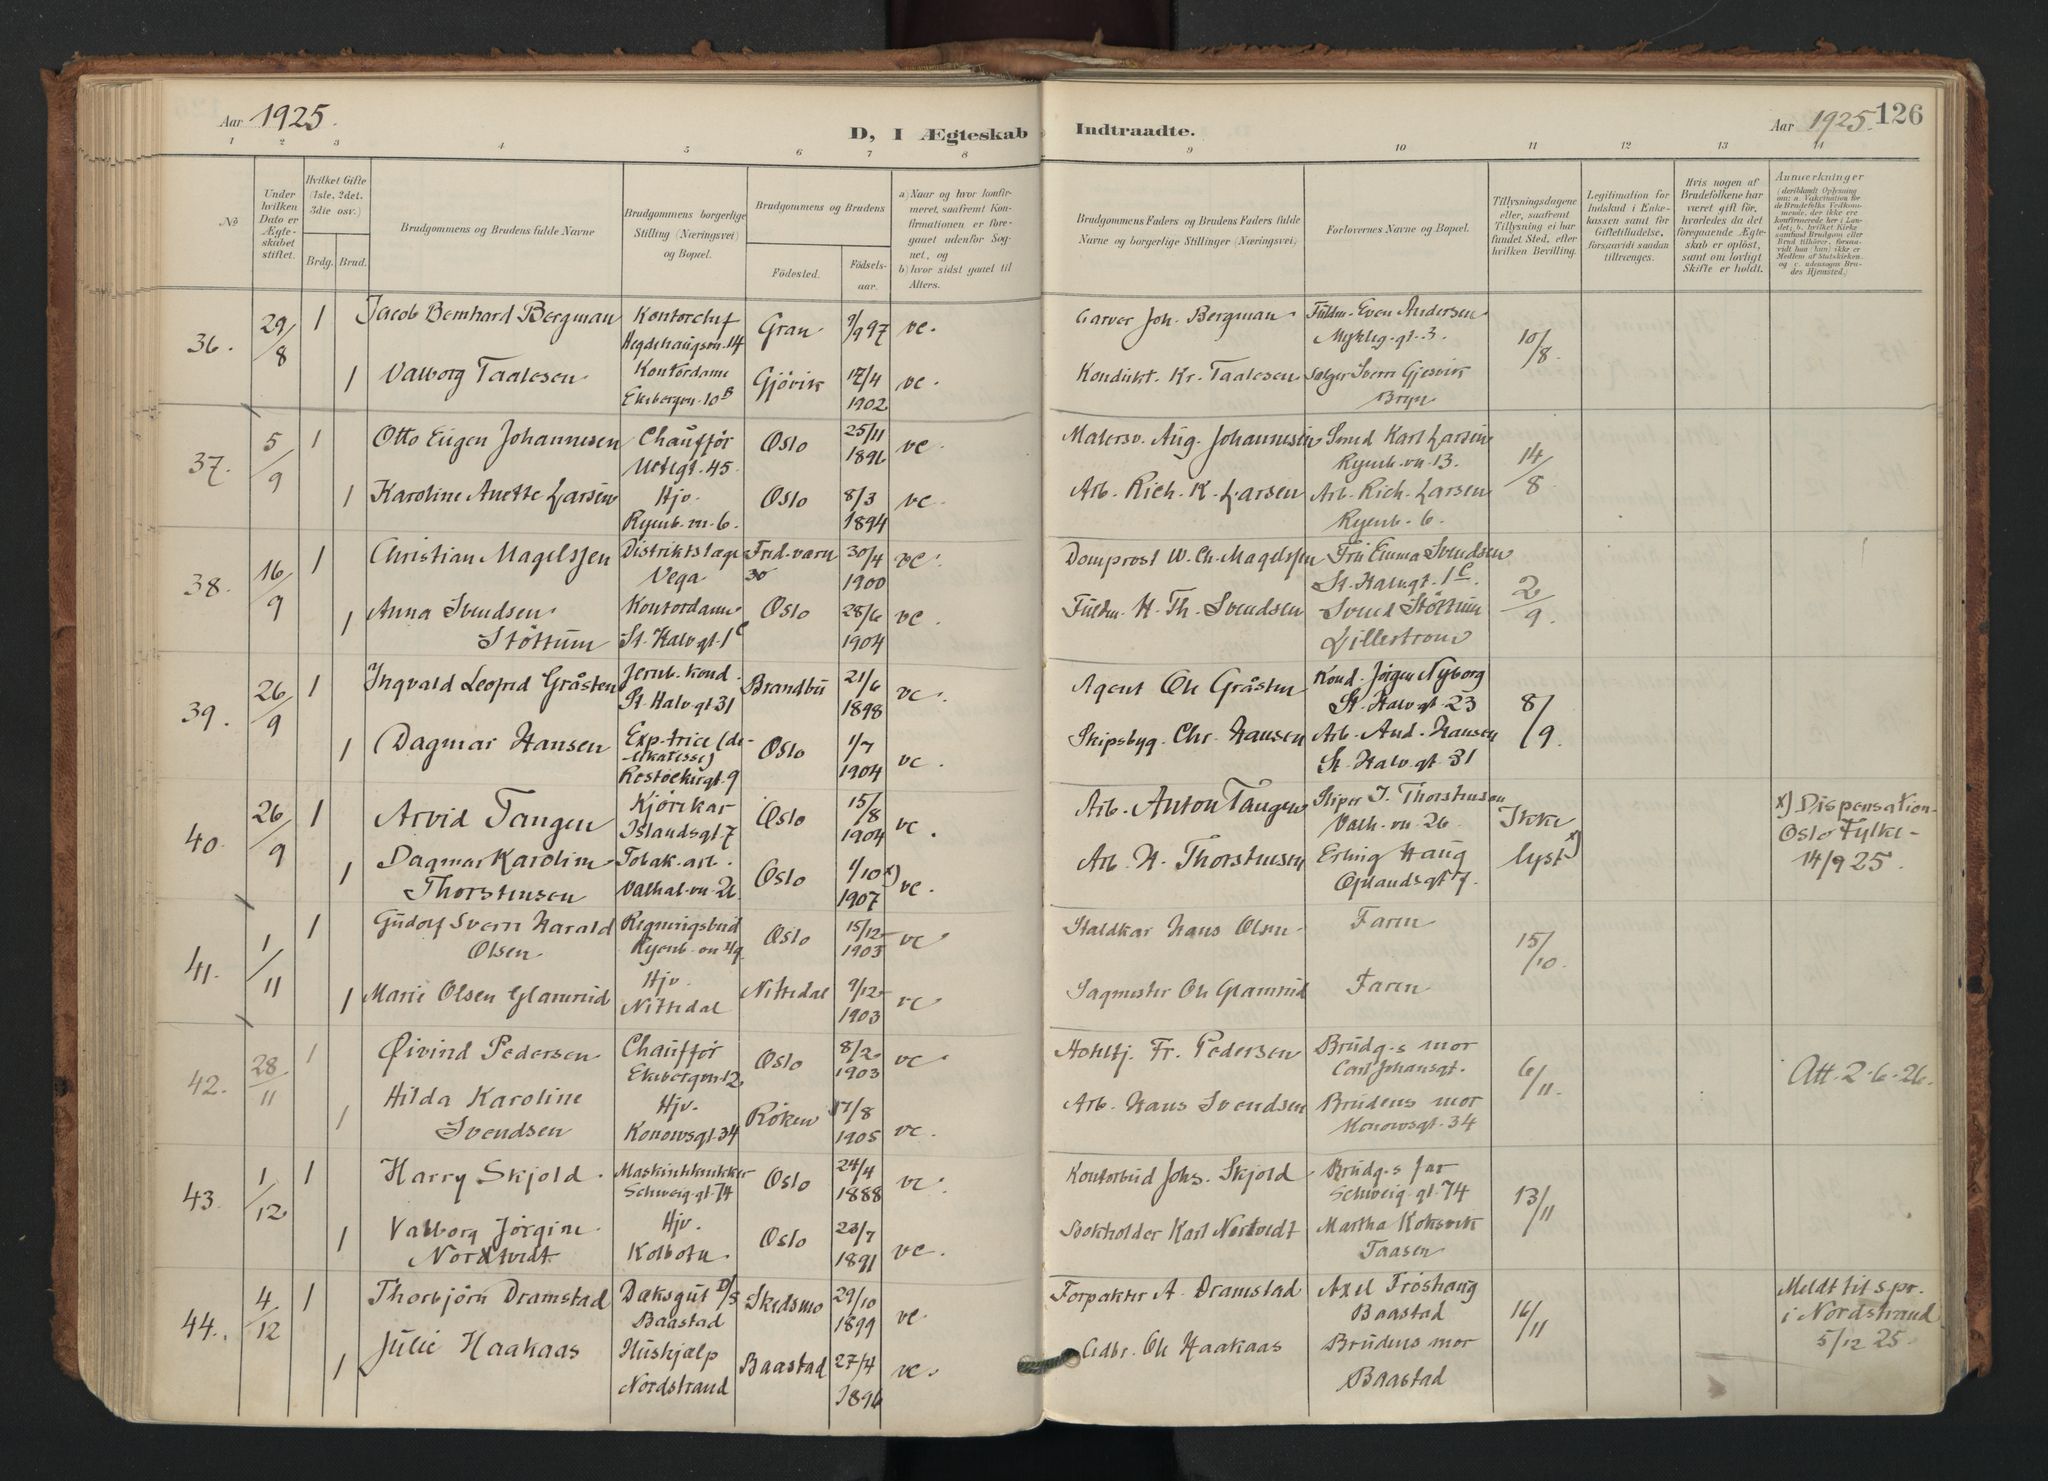 Aar 1925.
D, I Ægteskab Indtraadte.
Aar 1925. 126
1 2 3 4 5 6 7 8 9 10 11 12 13 14
No
Under hvilken Dato er Ægteskabet stiftet.
Hvilket Gifte (1ste, 2det, 3die osv.)
Brdg. Brud.
Brudgommens og Brudens fulde Navne
Brudgommens borgerlige Stilling (Næringsvei) og Bopæl.
Brudgommens og Brudens
Fødested. Fødselsaar.
a) Naar og hvor konfirmeret, saafremt Konfirmationen er foregaaet udenfor Sognet, og
b) hvor sidst gaaet til Alters.
Brudgommens Faders og Brudens Faders fulde Navne og borgerlige Stillinger (Næringsvei)
Forlovernes Navne og Bopæl.
Tillysningsdagene eller, saafremt Tillysning ei har fundet Sted, efter hvilken Bevilling.
Legitimation for Indskud i Enkekassen samt for Giftetilladelse, forsaavidt saadan tiltrænges.
Hvis nogen af Brudefolkene har været gift før, hvorledes da det foregaaende Ægteskab er opløst, samt om lovligt Skifte er holdt.
Anmærkninger
36. 29/8 1 Jacob Bernhard Bergman Kontorchef Hegdehaugsvn. 14 Gran 9/9 97 vc. Garver Joh. Bergman. Fuldm. Even Andersen Myhleg. gt. 3. 10/8
1 Valborg Taalesen Kontordame Ekebergvn. 10B Gjøvik 12/4 1902 vc. Kondukt. Kr. Taalesen Sælger Sverre Gjesvik Bryn
37. 5/9 1 Otto Eugen Johannesen Chauffør 45. Oslo 25/11 1896 vc. Malersv. Aug. Johannesen Smed Karl Larsen Ryenb. vn 13. 14/8
1 Karoline Anette Larsen Hjv. Ryenb. vn. 6. Oslo 8/3 1894 vc. Arb. Rich. K. Larsen Arb. Rich. Larsen Ryenb. 6.
38. 16/9 1 Christian Magelssen Distriktslæge Vega Fred. værn 30/4 1900 vc. Domprost W. Ch. Magelssen Fru Emma Svendsen St. Halvgt. 1C. 2/9
1 Anna Svendsen Støttum Kontordame St. Halvgt. 1C Oslo 28/6 1904 vc. Fuldm. H. Th. Svendsen Svend Støttum Lillestrøm
39. 26/9 1 Ingvald Leopold Gråsten Jernb. kond. St. Halv. gt 31 Brandbu 21/6 1898 vc. Agent Ole Gråsten Kond. Jørgen Nyborg St. Halv gt. 23 8/9
1 Dagmar Hansen Exp.trice (delikatesse) 9 Oslo 1/7 1904 vc. Skipsbyg. Chr. Hansen Arb. And. Hansen St. Halv gt. 31
40. 26/9 1 Arvid Tangen Kjørekar Islandsgt. 7 Oslo 15/8 1904 vc. Arb. Anton Tangen J. Thorstensen Valh. vn. 26. Ikke lyst x) x) Dispensation Oslo Fylke 14/9 25.
1 Dagmar Karoline Thorstensen Tobak. arb. Valhal. vn. 26 Oslo 1/10 x) 1907 vc. Arb. H. Thorstensen Erling Haug Oplandsgt 7.
41. 1/11 1 Gudolf Sverre Harald Olsen Regningsbud Ryenb. vn Oslo 15/12 1903 vc Staldkar Hans Olsen Faren 15/10.
1 Marie Olsen Glamrud Hjv. Nittedal Nittedal 9/12 1903 vc Sagmester Ole Glamrud Faren
42. 28/11 1 Øivind Pedersen Chauffør Ekebergvn. 12. Oslo 8/2 1903 vc Fr. Pedersen Brudg.s mor Carl Johansgt. 6/11 Att. 2-6-26.
1 Hilda Karoline Svendsen Hjv. Konowsgt. 34 Røken 17/8 1905 vc. Arb. Hans Svendsen Brudens mor Konowsgt. 34
43. 1/12 1 Harry Skjold. Maskintrykker Schweig. gt. 74 Oslo 24/4 1888 vc. Kontorbud Johs. Skjold Brudg.s far Schweig. gt. 74 13/11
1 Valborg Jørgine Nordtvedt Hjv. Kolbotn Oslo 23/7 1891 vc. Bokholder Karl Nordtvedt Martha Koksvik Taasen
44. 4/12 1 Thorbjørn Dramstad Dæksgut D/S Baastad Skedsmo 29/10 1899 vc. Forpakter A. Dramstad Axel Frøshaug Baastad 16/11 Meldt til s.pr. i Nordstrand 5/12 25.
1 Julie Haakaas Hushjælp Nordstrand Baastad 27/4 1896 vc. Gdbr. Ole Haakaas Brudens mor Baastad